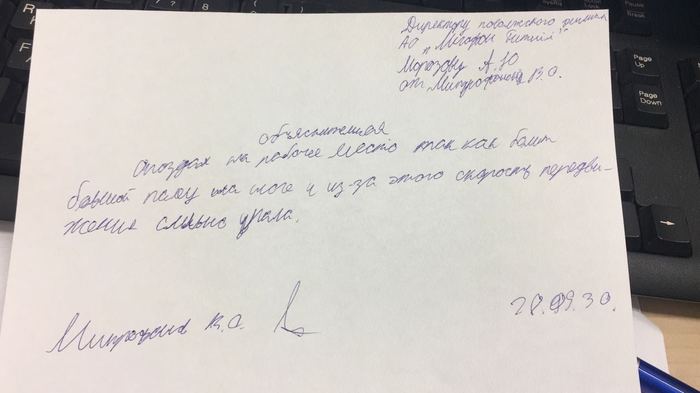 Директору поволжского филиала
АО "Мегафон Ритейл"
Морозову А.Ю
от Митрофанова В.О.
объяснительная
Опоздал на рабочее место так как болит
большой палец на ноге и из-за этого скорость передви-
жения сильно упала.
Митрофанов В.О.
Page
Up
Page
Down